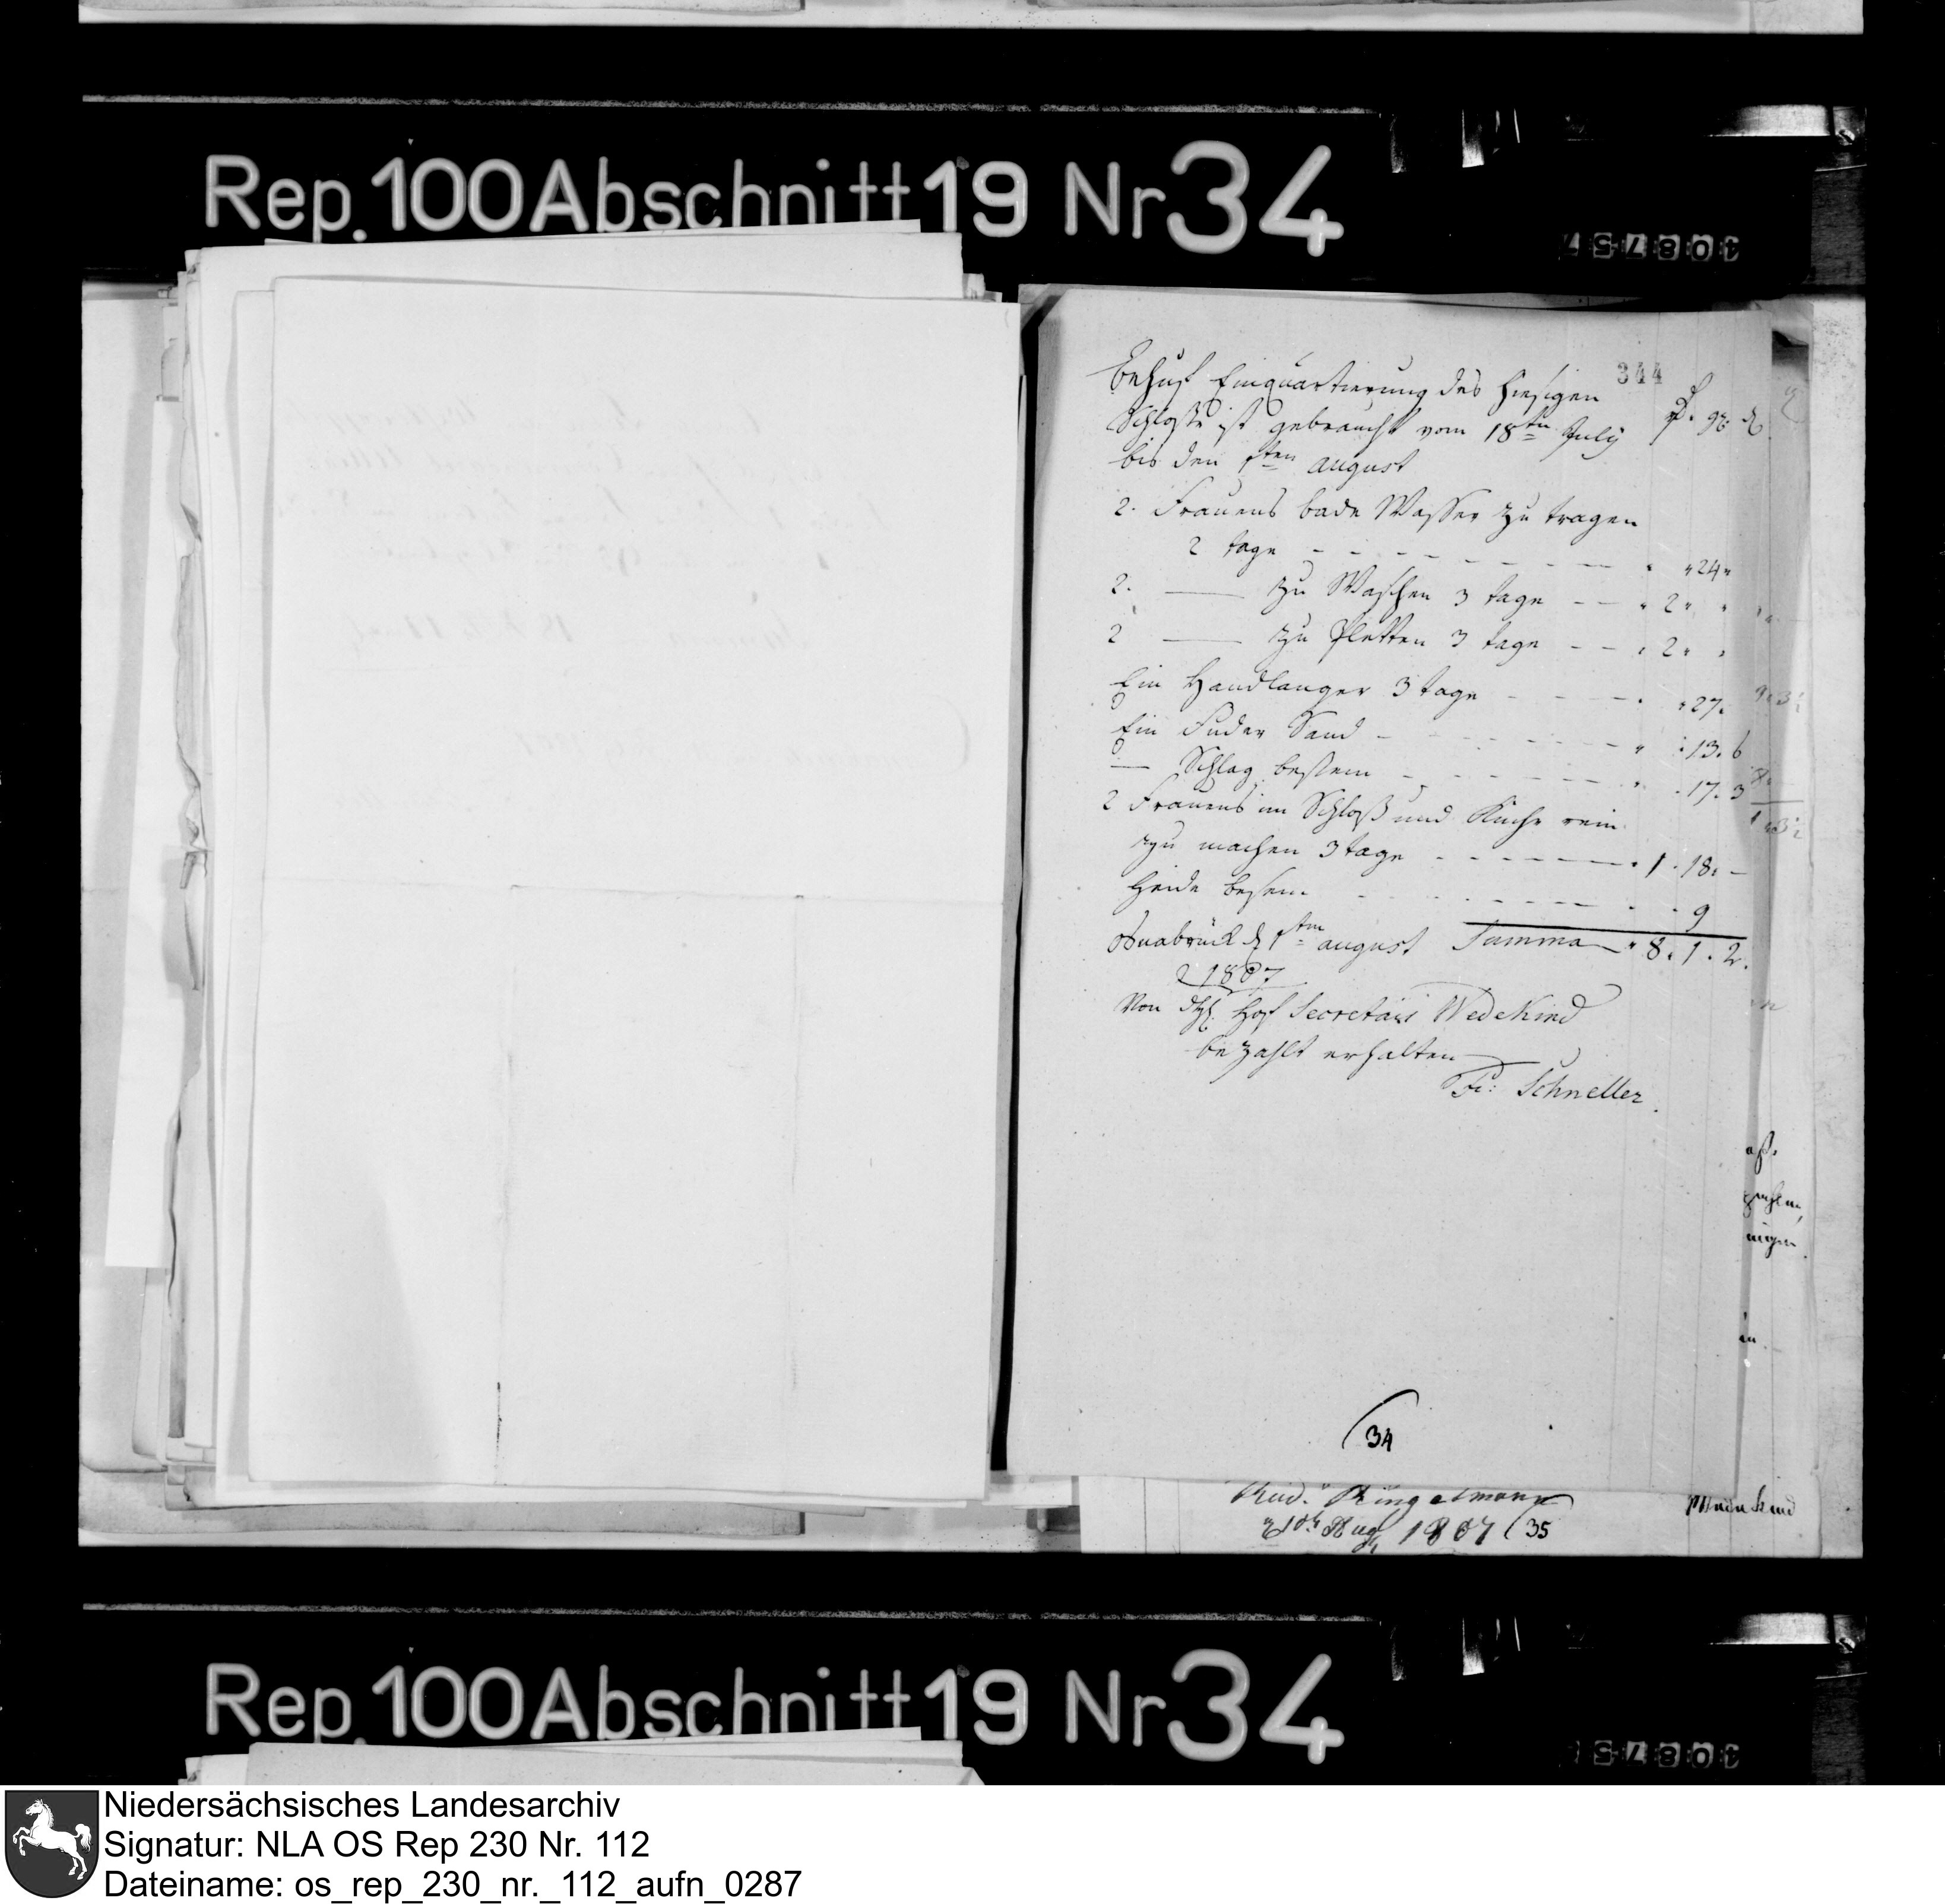 Rep. 100 Abschnitt 19 Nr 34
108757
344
Behuf Einquartierung des hiesigen
Schloße ist gebraucht vom 18ten July
bis den 1ten august
rT. gr. d
2. Frauens bade Wasser zu tragen
2 tage - - - - - - - - " "24"
2. — zu Waschen 3 tage - - " 2 " "
2 — zu Pletten 3 tage - - " 2 " "
Ein Handlanger 3 tage - - - - " "27.
Ein Fuder Sand - - - - - - " " 13. 6
— Schlag beßem - - - - - - " . 17. 3
2 Frauens im Schloß und Küche rein
zu machen 3 tage - - - - - . 1 . 18. -
Heide besem - - - - - - . . 9
Osnabrück d 1ten august Summa " 8. 1. 2.
1807
Von Hof Secretair Wedekind
bezahlt erhalten
Fr: Schneller.
34
Rud. Ringelmann
Aug 1807 35
Rep. 100 Abschnitt 19 Nr 34
Niedersächsisches Landesarchiv
Signatur: NLA OS Rep 230 Nr. 112
Dateiname: os_rep_230_nr._112_aufn_0287